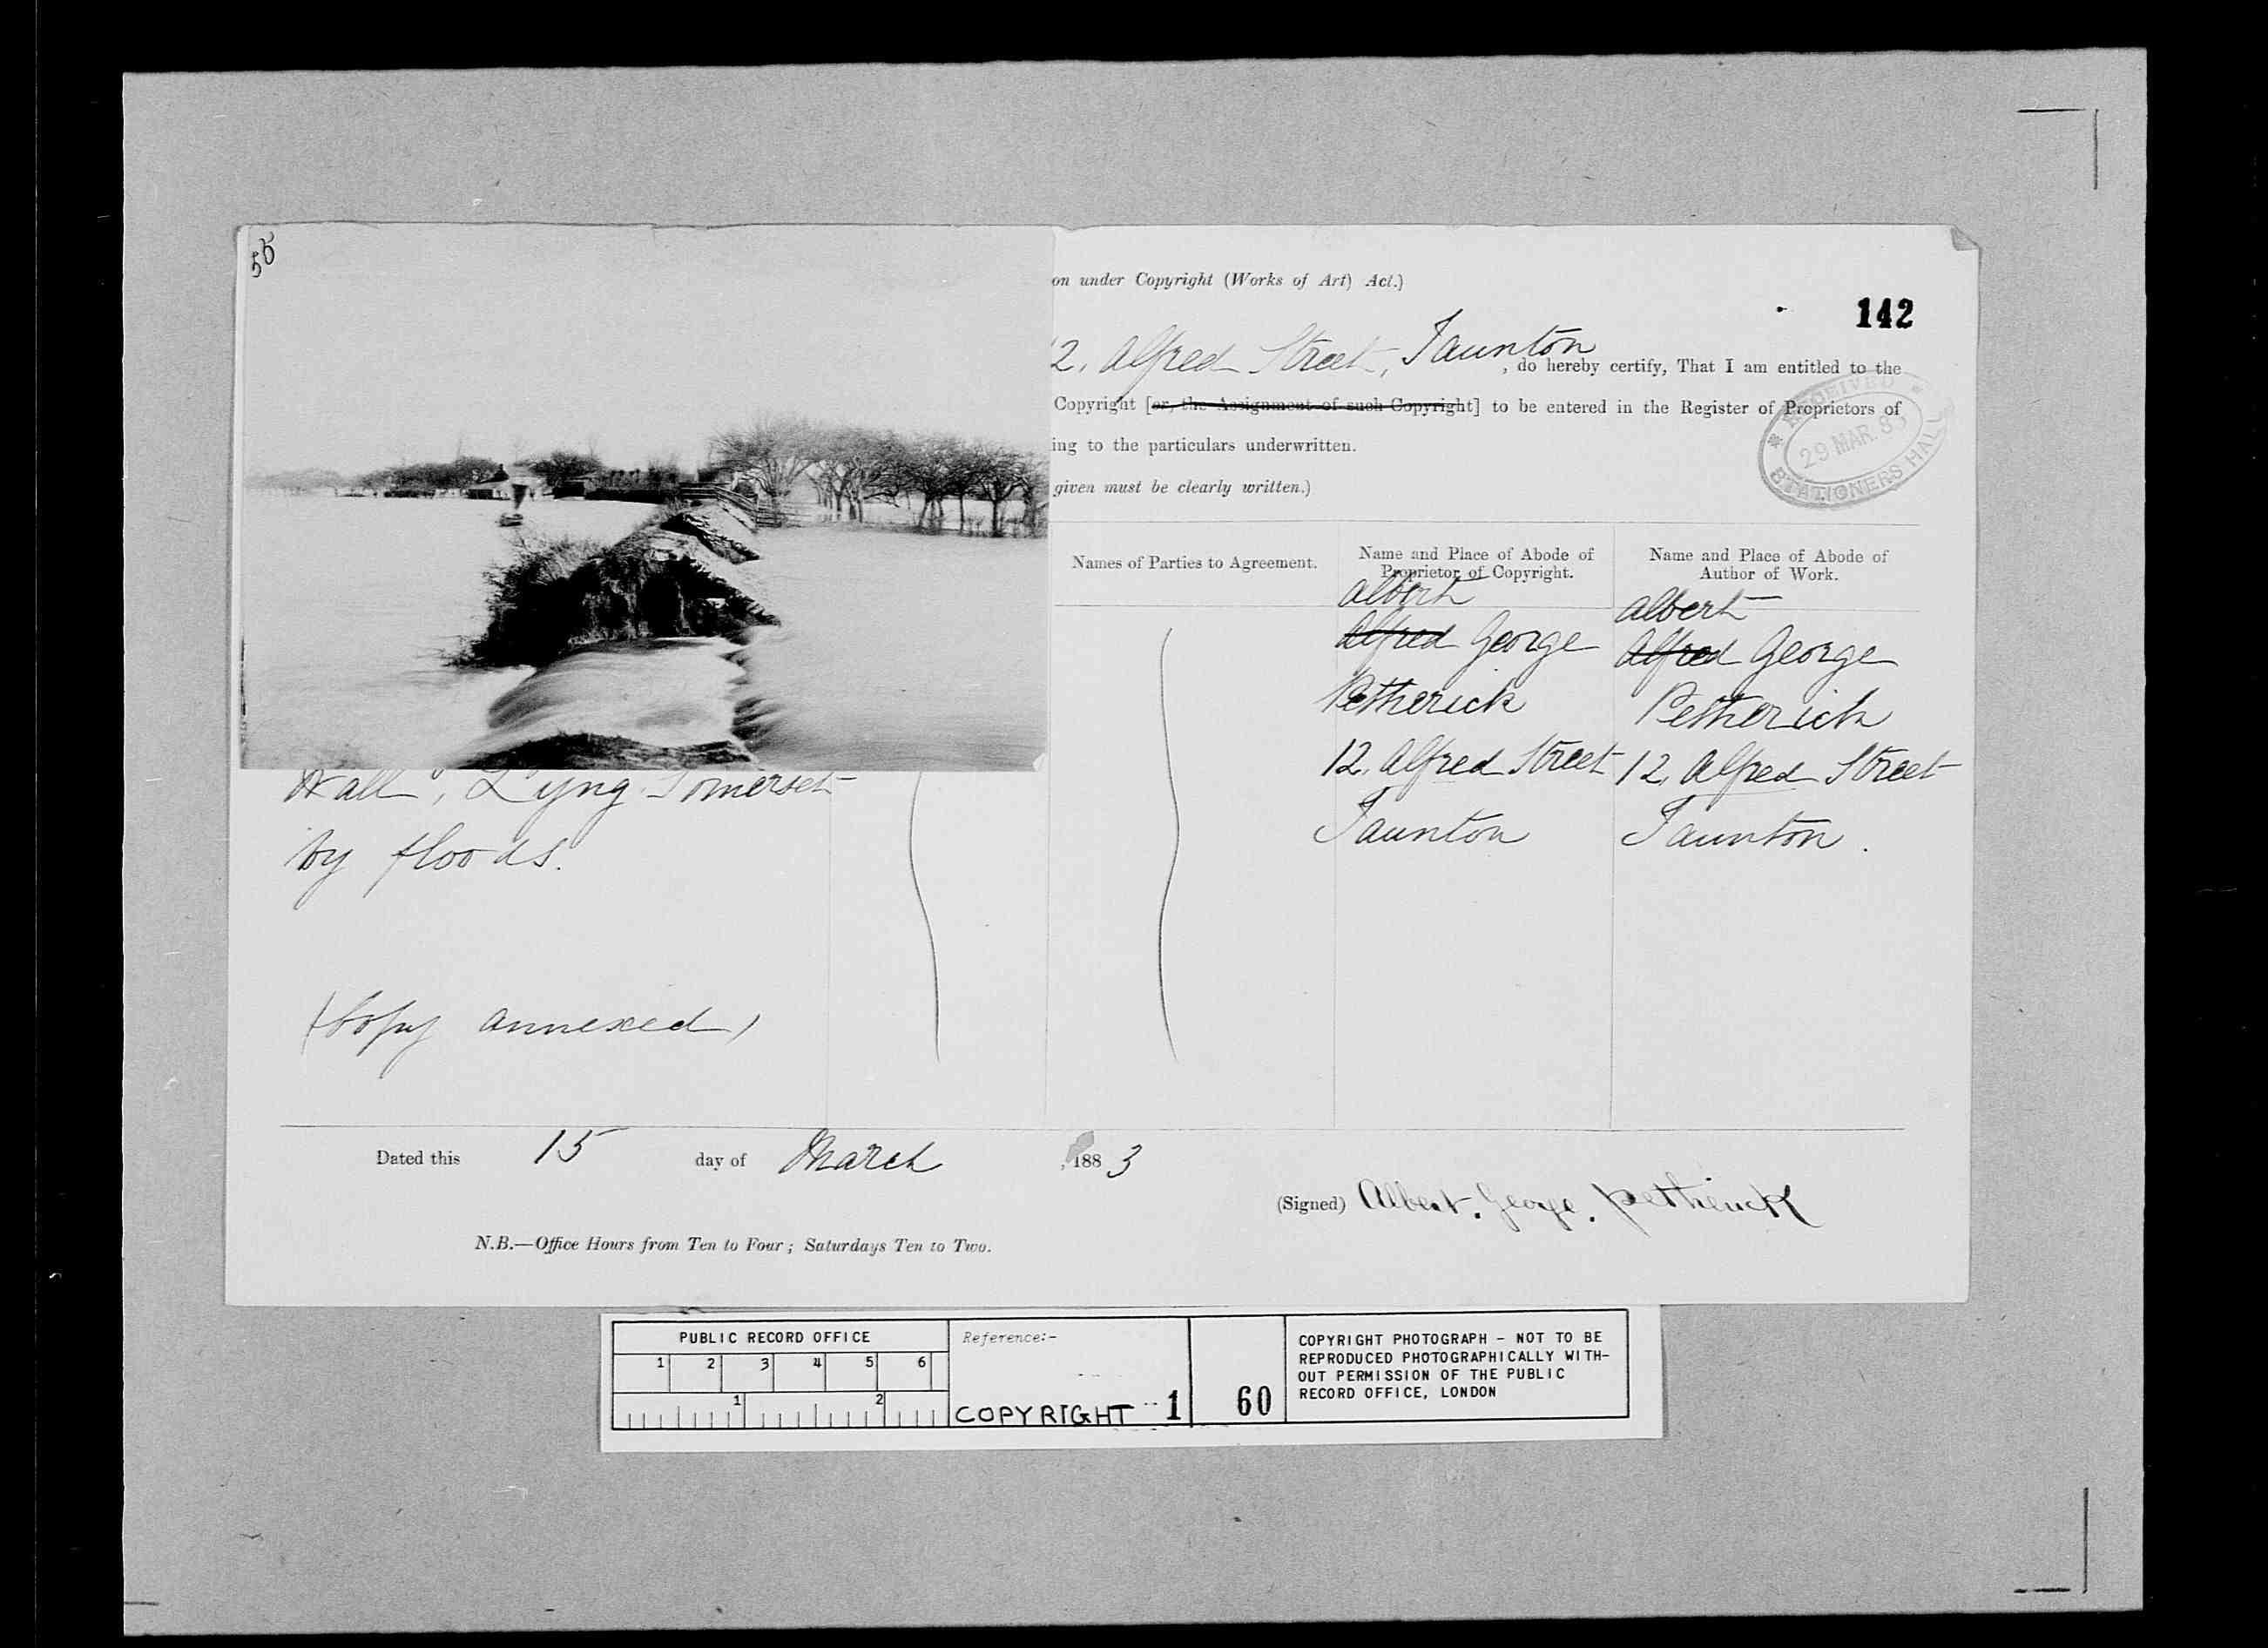 56
on under Copyright (Works of Art) Act.)
142
12, Alfred Street, Taunton, do hereby certify, That I am entitled to the
Copyright [or, the Assignment of such Copyright] to be entered in the Register of Proprietors of
ing to the particulars underwritten.
given must be clearly written.)
* RECEIVED *
29 MAR. 83
STATIONERS HALL
Names of Parties to Agreement.
Name and Place of Abode of
Proprietor of Copyright.
Albert
Alfred George
Petherick
12, Alfred Street
Taunton
Name and Place of Abode of
Author of Work.
Albert
Alfred George
Petherick
12, Alfred Street
Taunton.
Wall", Lyng Somerset
by floods.
(Copy annexed)
Dated this 15 day of March, 1883
(Signed) Albert. George. Petherick
N.B.—Office Hours from Ten to Four; Saturdays Ten to Two.
PUBLIC RECORD OFFICE
1 2 3 4 5 6
1 2
Reference:-
COPYRIGHT 1
60
COPYRIGHT PHOTOGRAPH - NOT TO BE
REPRODUCED PHOTOGRAPHICALLY WITH-
OUT PERMISSION OF THE PUBLIC
RECORD OFFICE, LONDON